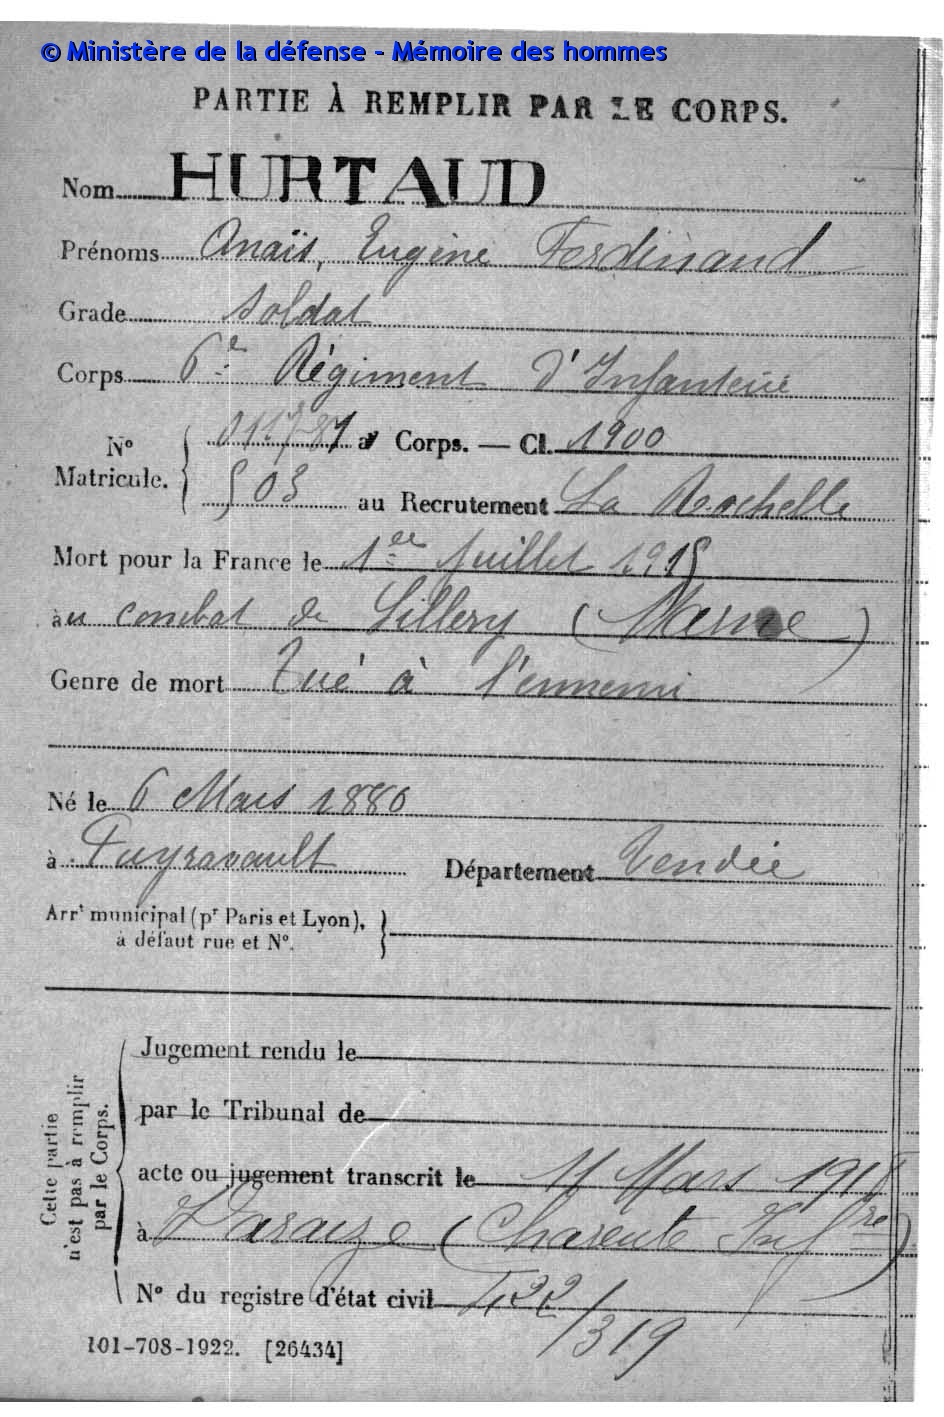 © Ministère de la défense - Mémoire des hommes
PARTIE À REMPLIR PAR LE CORPS.
Nom HURTAUD
Prénoms Anaïs, Eugène Ferdinand
Grade Soldat
Corps 6e Régiment d'Infanterie
N° Matricule. 01787 au Corps. — Cl. 1900
503 au Recrutement La Rochelle
Mort pour la France le 1er Juillet 1915
au combat de Sillery (Marne)
Genre de mort Tué à l'ennemi
Né le 6 Mars 1880
à Puyravault Département Vendée
Arrt municipal (pr Paris et Lyon),
à défaut rue et N°.
Cette partie n'est pas à remplir par le Corps.
Jugement rendu le
par le Tribunal de
acte ou jugement transcrit le 11 Mars 1918
à (Charente Infre)
N° du registre d'état civil
/319
101-708-1922. [26434]